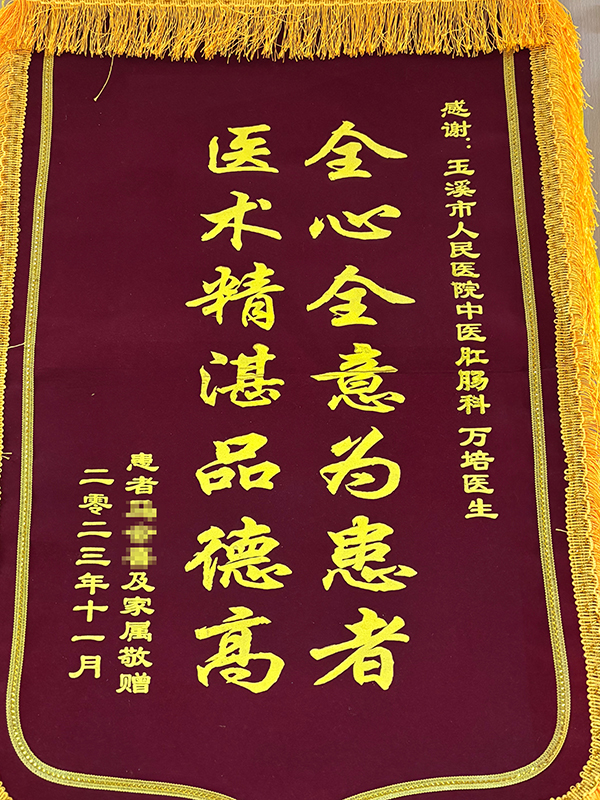 感谢：玉溪市人民医院中医肛肠科 万培医生
全心全意为患者
医术精湛品德高
患者及家属敬赠
二零二三年十一月